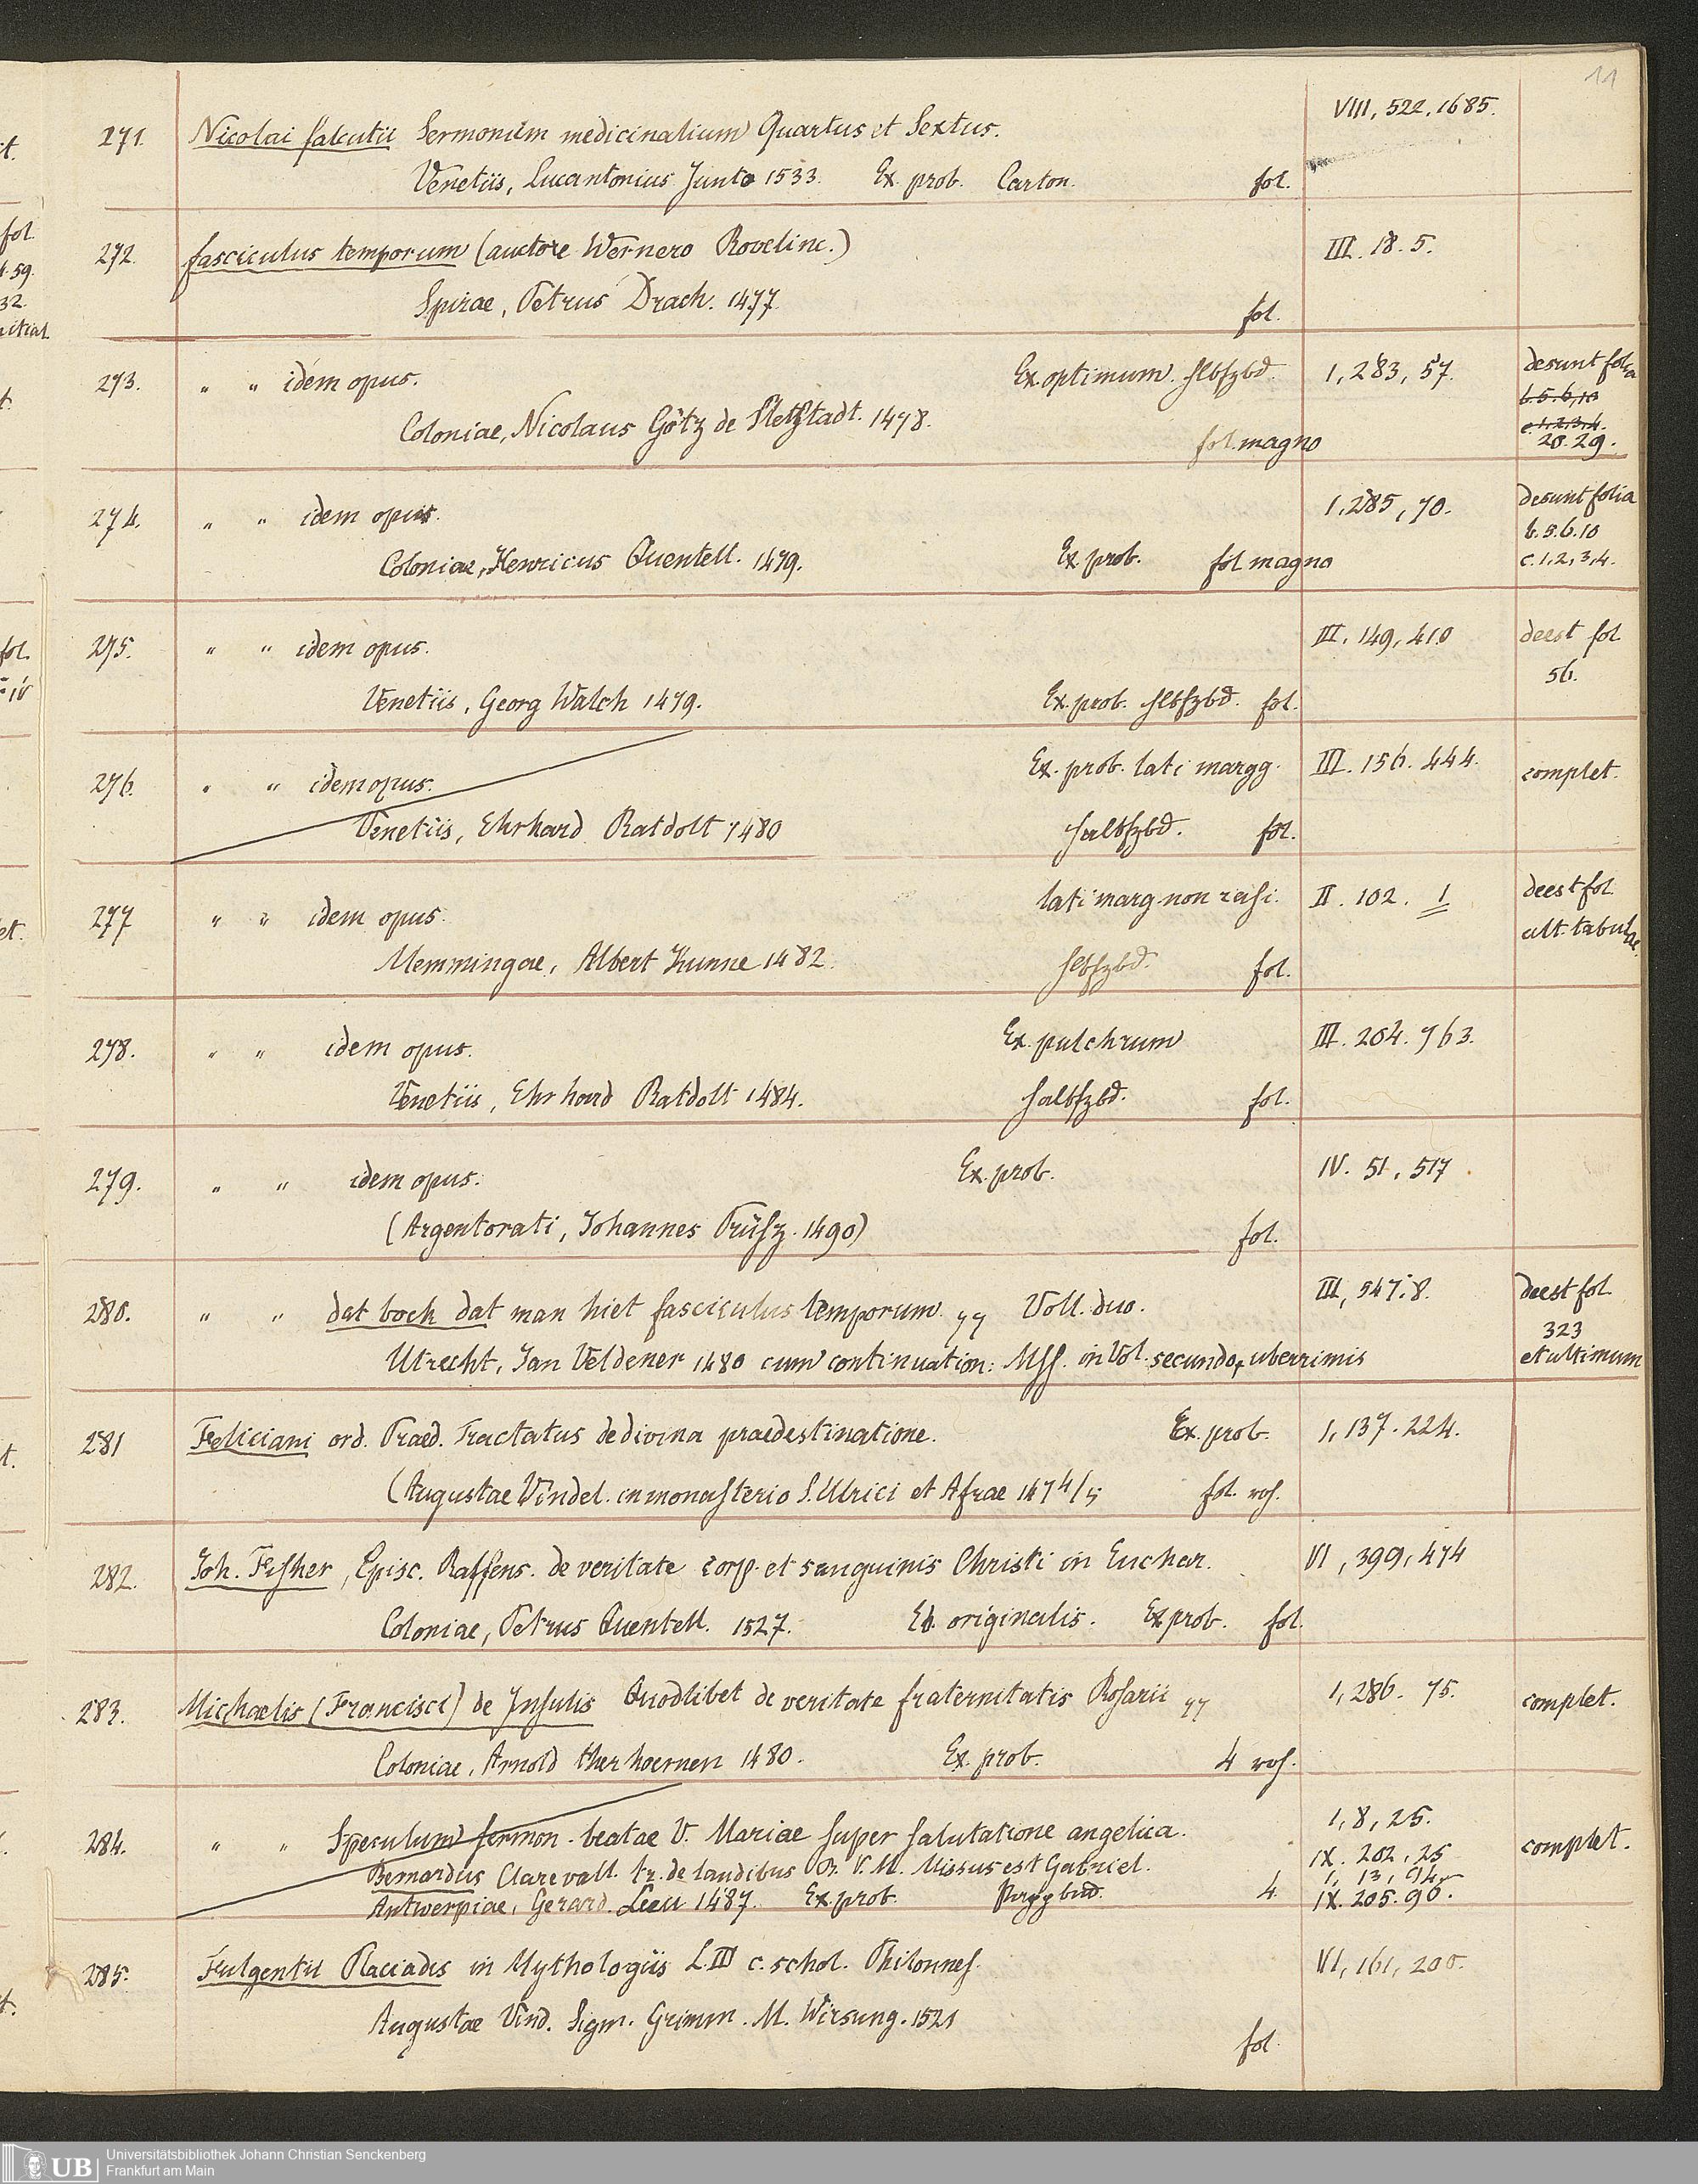 11
271. Nicolai falcutii Sermonum medicinalium Quartus et Sextus. VIII, 522, 1685.
Venetiis, Lucantonius Junta 1533. Ex. prob. Carton. fol.
272. fasciculus temporum (auctore Wernero Rovelinc.) III. 18. 5.
Spirae, Petrus Drach. 1477. fol.
273. " " idem opus. Ex. optimum. Hlbfzbd. 1, 283, 57. desunt folia
b. 5. 6, 10
c. 1, 2, 3, 4.
Coloniae, Nicolaus Götz de Sletzstadt. 1478. fol. magno 20. 29.
274. " " idem opus. 1, 285, 70. desunt folia
b. 5. 6. 10
Coloniae, Henricus Quentell. 1479. Ex. prob. fol magno c. 1, 2, 3, 4.
275. " " idem opus. III. 149, 410 deest fol
56.
Venetiis, Georg Walch 1479. Ex. prob. Hlbfzbd. fol.
276. " " idem opus. Ex. prob. lati margg. III. 156. 444. complet.
Venetiis, Ehrhard Ratdolt 1480 Halbfzbd. fol.
277 " " idem opus. lati marg non rasi. II. 102. 1 deest fol
ult. tabulae.
Memmingae, Albert Kunne 1482. Hlbfzbd. fol.
278. " " idem opus. Ex. pulchrum III. 204. 763.
Venetiis, Ehrhard Ratdolt 1484. Halbfzbd. fol.
279. " " idem opus. Ex. prob. IV. 51, 517.
(Argentorati, Johannes Prüsz. 1490) fol.
280. " " dat boek dat man hiet fasciculus temporum. Voll. duo. III, 547. 8. deest fol.
323
Utrecht, Jan Veldener 1480 cum continuation: Mss. in Vol. secundo, uberrimis et ultimum
281 Feliciani ord. Praed. Tractatus de divina praedestinatione. Ex. prob. 1, 137. 224.
(Augustae Vindel. in monasterio S. Ulrici et Afrae 1474/5 fol. roh.
282. Joh. Fisher, Episc. Roffens. de veritate corp. et sanguinis Christi in Euchar. VI, 399, 474
Coloniae, Petrus Quentell. 1527. Ed. originalis. Ex prob. fol.
283. Michaelis (Francisci) de Insulis Quodlibet de veritate fraternitatis Rosarii 1, 286. 75. complet.
Coloniae, Arnold ther hoernen 1480. Ex. prob. 4 roh.
284. " " Speculum sermon. beatae V. Mariae super salutatione angelica. 1, 8, 25. complet.
IX. 202, 25
Bernardus Clarevall. tr. de laudibus B. V. M. Missus est Gabriel. 1, 13, 94
Antwerpiae, Gerard. Leeu 1487. Ex. prob. Pergbd. 4. IX. 205. 90.
285. Fulgentii Placiadis in Mythologiis L. III c. schol. Philomus. VI, 161, 200.
Augustae Vind. Sigm. Grimm. M. Wirsung. 1521 fol.
UB Universitätsbibliothek Johann Christian Senckenberg
Frankfurt am Main